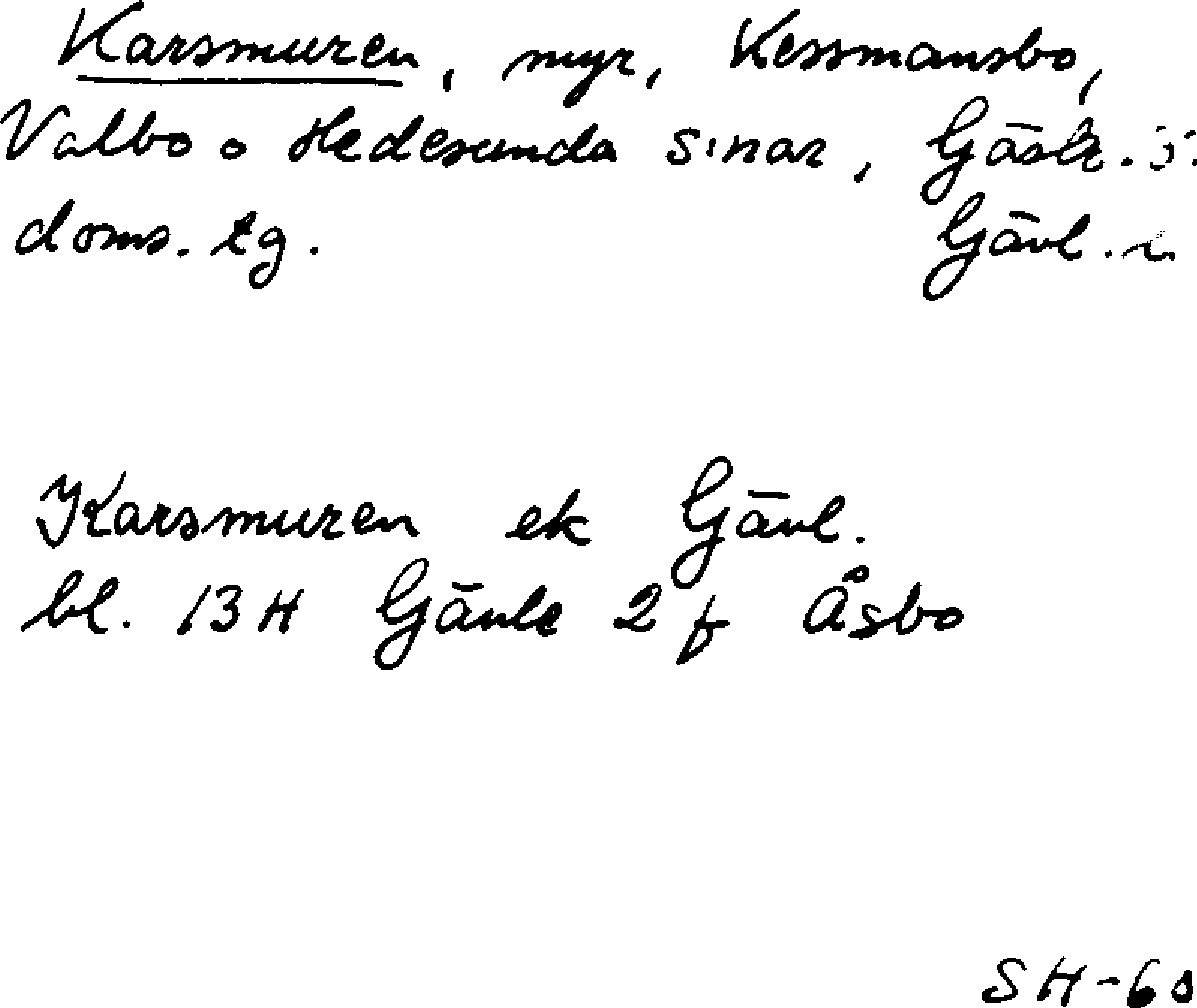 Karsmuren, myr, Kessmansbo,
Valbo o Hedesunda s:nar, Gästr. ö.
doms. tg. Gävl. l.
Karsmuren ek Gävl.
bl. 13H Gävle 2f Åsbo
SH-60